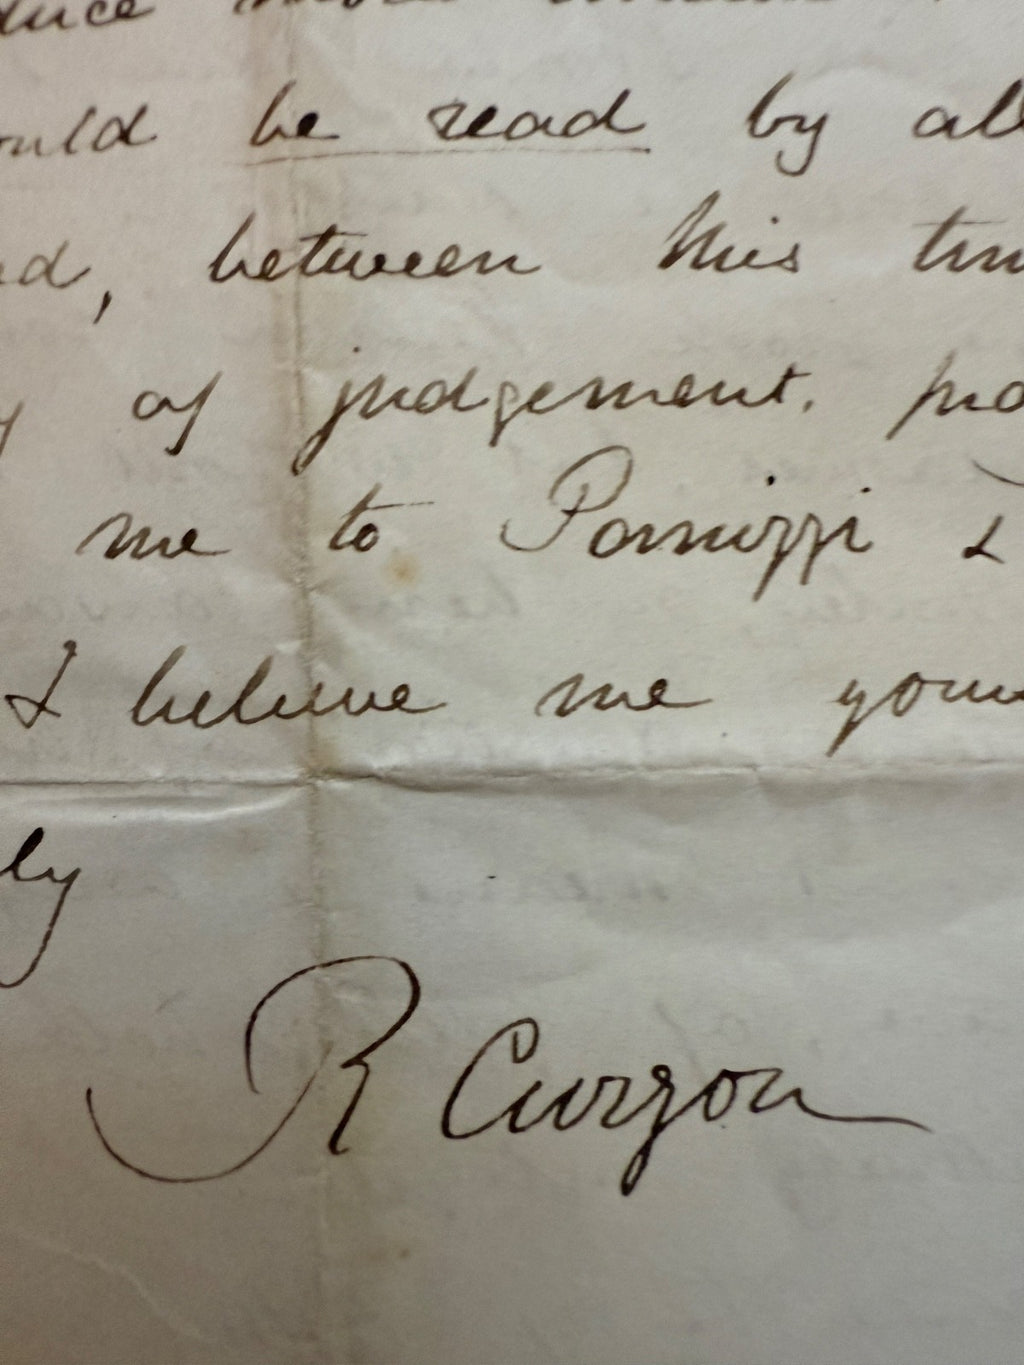 ould be read by all
ed, between this tim
y of judgement. pra
me to Pannizzi &
& believe me yours
ly
R Curzon